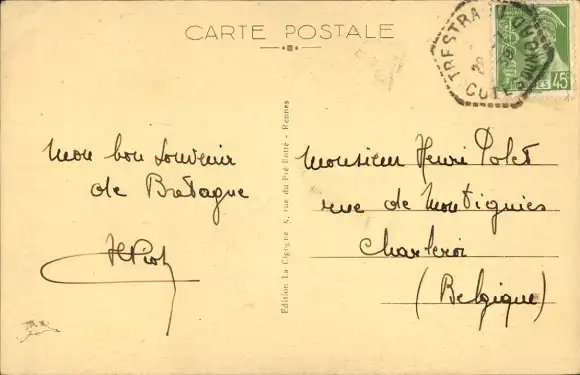 CARTE POSTALE
TRESTRA
CÔTE
45
Mon bon souvenir
de Bretagne
Monsieur Henri Polet
rue de Montignies
Charleroi
(Belgique)
Edition La Cigogne 5, rue du Pré Botté - Rennes